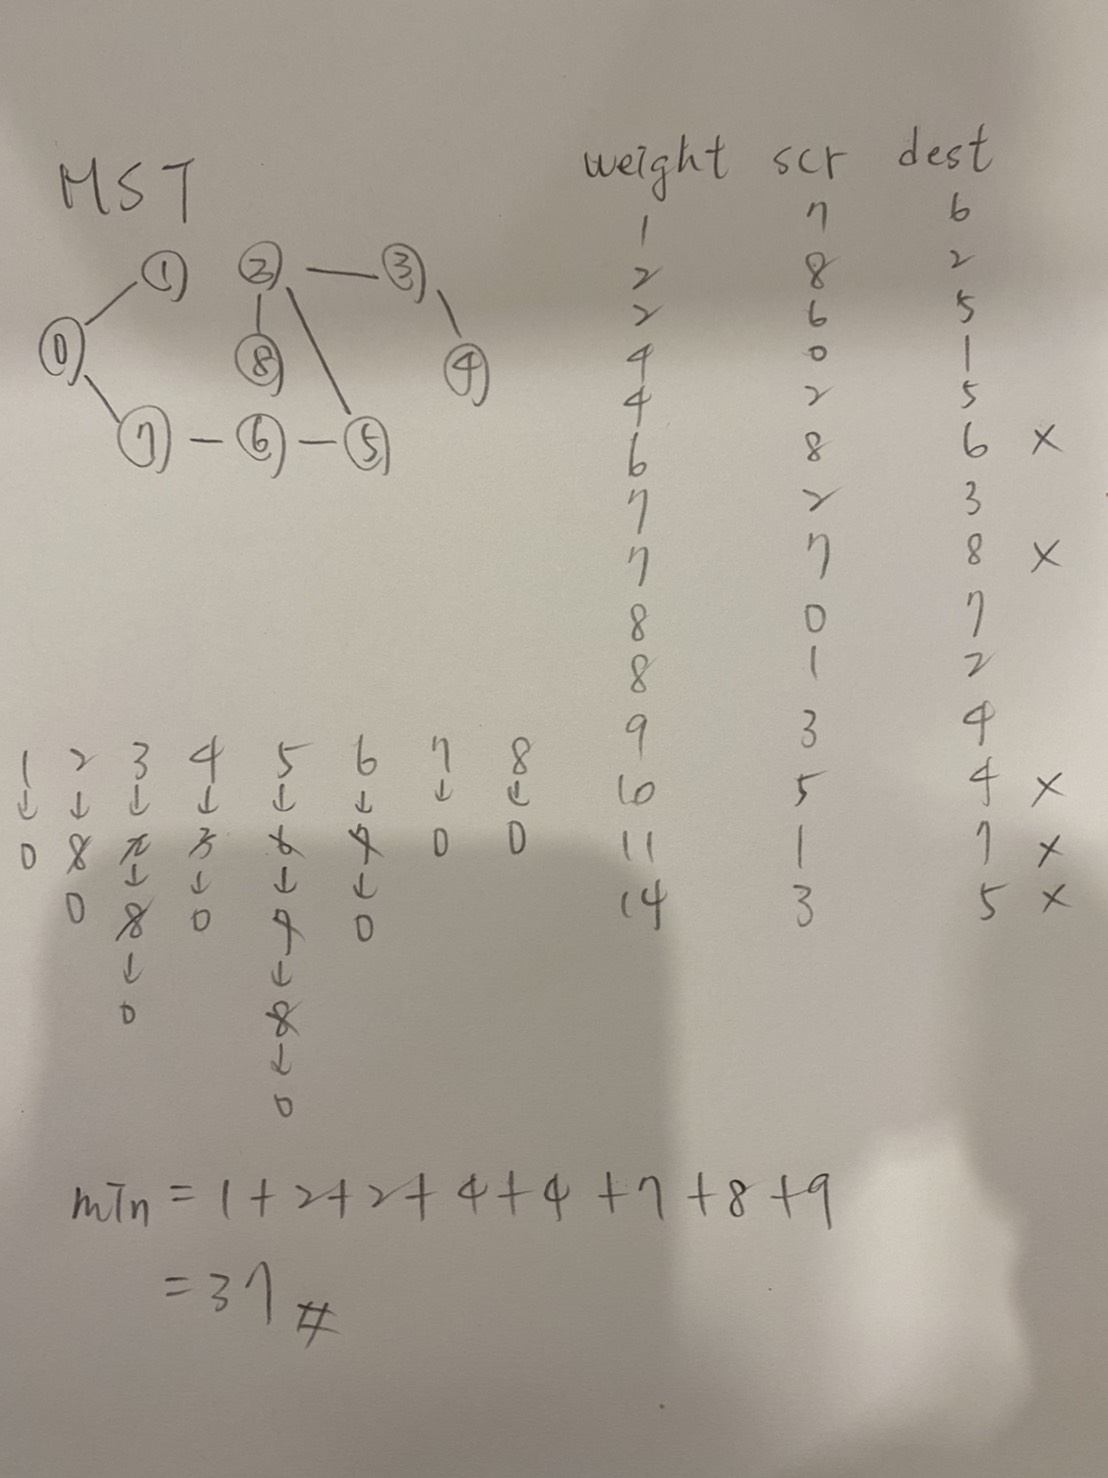 MST
① ② ③
⓪ ⑧ ④
⑦ ⑥ ⑤
weight scr dest
1 7 6
2 8 2
2 6 5
4 0 1
4 2 5
6 8 6 ×
7 2 3
7 7 8 ×
8 0 7
8 1 2
9 3 4
10 5 4 ×
11 1 7 ×
14 3 5 ×
1 2 3 4 5 6 7 8
↓ ↓ ↓ ↓ ↓ ↓ ↓ ↓
0 8 2 3 6 7 0 0
↓ ↓ ↓ ↓
0 8 0 7 0
↓ ↓
0 8
↓
0
min = 1+2+2+4+4+7+8+9
= 37 #